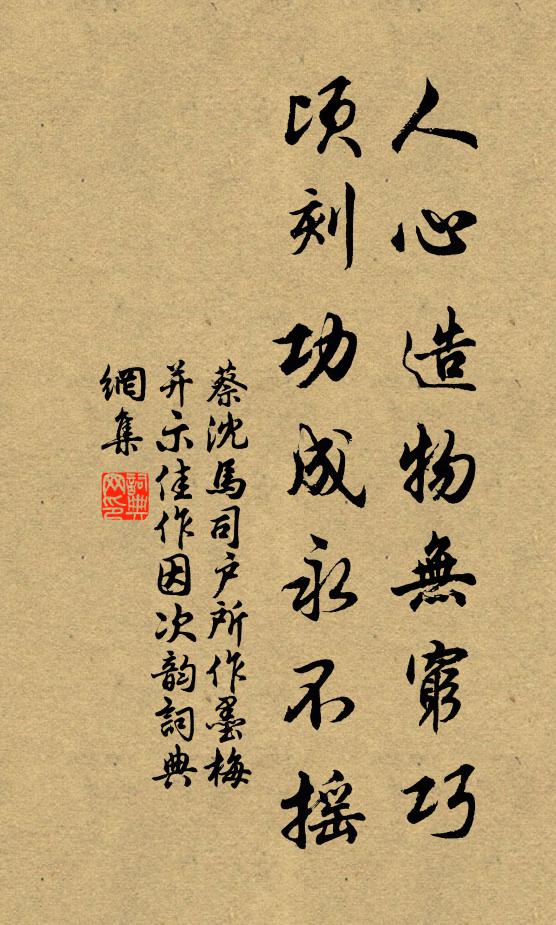 人心造物無窮巧
頃刻功成永不摇
蔡沈馬司户所作墨梅
并示佳作因次韵詞典
網集
詞典
网印